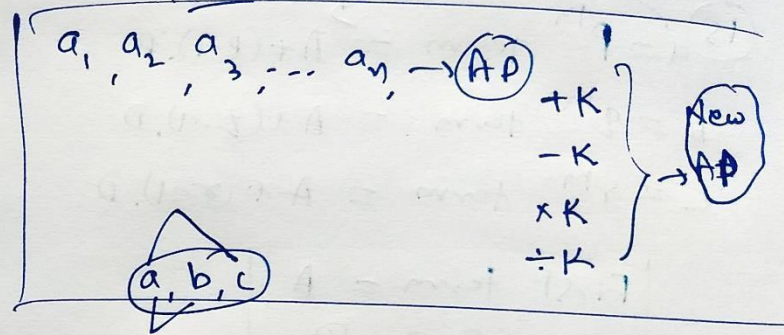 a₁, a₂, a₃, ... aₙ, → AP
+K
-K
×K
÷K
→ New AP
a, b, c